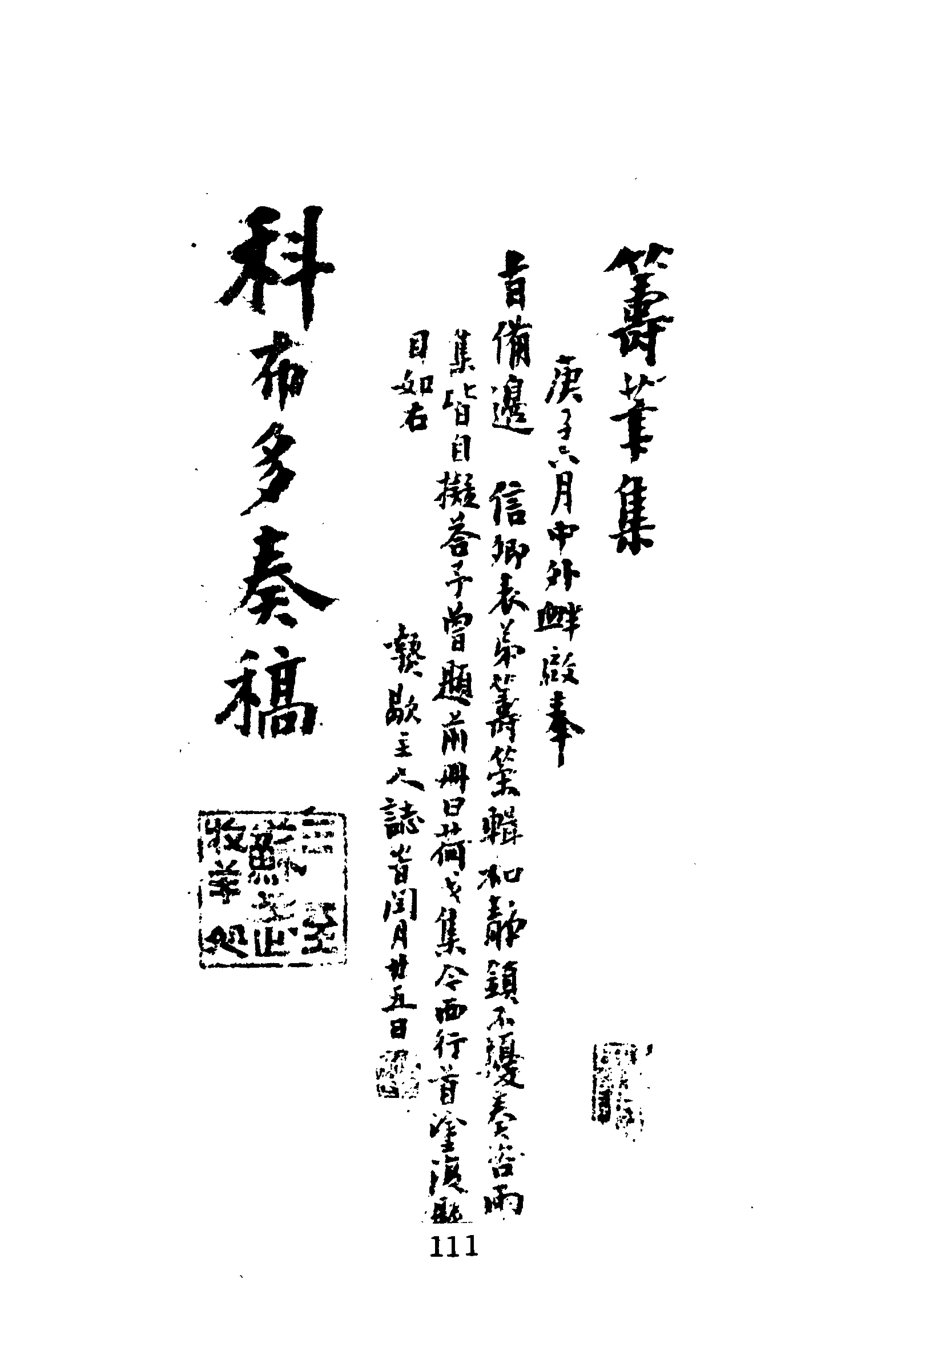 籌筆集
庚子六月中外衅啟奉
旨備邊 信卿表弟籌策輯和靜鎮不擾奏咨兩
集皆自擬荅予曾題前冊曰荷戈集今西行首塗復題
目如右
歎歇主人誌 時閏月廿五日
科布多奏稿
三至
蘇武
牧羊處
111